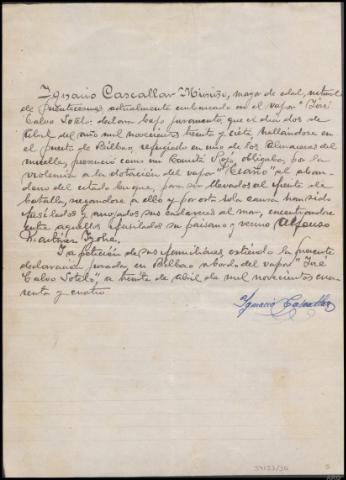 Ignacio Cascallar Miniño, mayor de edad, natural
de actualmente embarcado en el vapor "José
Calvo Sotelo: declara bajo juramento, que el dia dos de
Abril del año mil novecientos treinta y siete, hallándose en
el puerto de Bilbao, refugiado en uno de los Almacenes del
muelle, presenció como un Comité Rojo obligaba, por la
violencia a la dotación del vapor "Ciaño" al aban-
dono del citado buque, para ser llevados al frente de
batalla, negandose a ello y por esta sola causa han sido
fusilados y arrojados sus cadaveres al mar, encontrandose
entre aquellos fusilados su paisano y vecino Alfonso
Martinez
Y a petición de sus familiares extiendo la presente
declaración jurada, en Bilbao a bordo del vapor "José
Calvo Sotelo", a treinta de abril de mil novecientos cua-
renta y cuatro.
Ignacio Cascallar